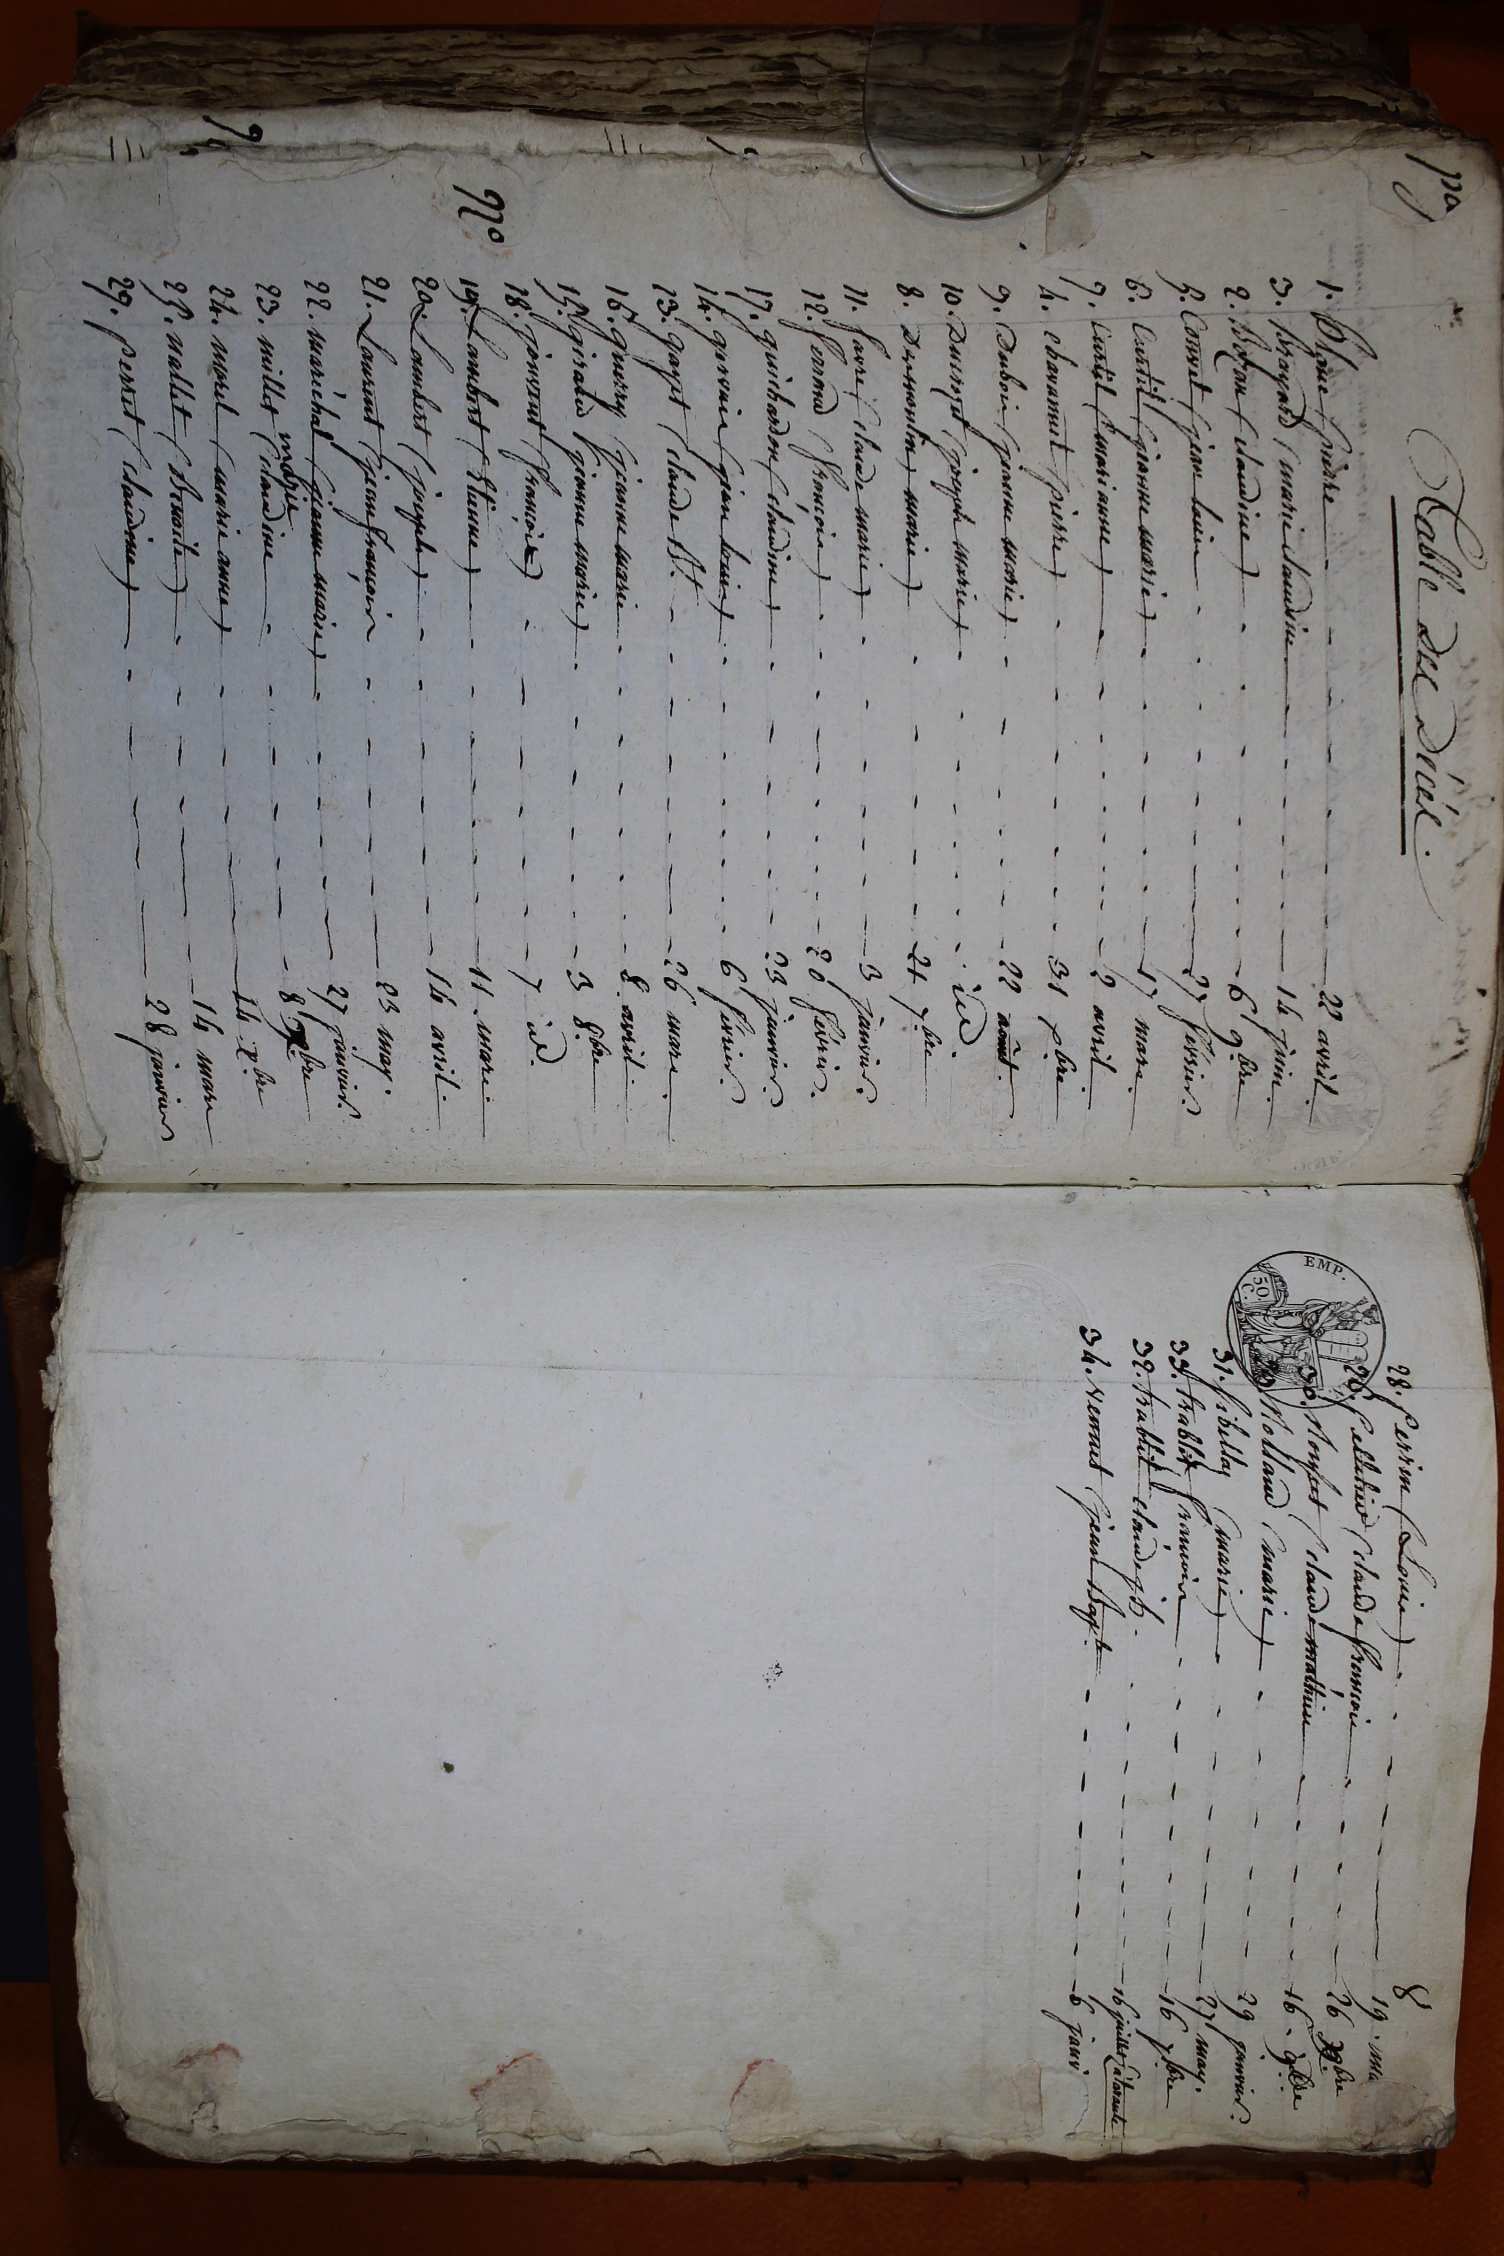 pa
N°
Table des décès.
1. Blanc (pierre — 22 avril.
3. broyard (marie claudine — 14 juin.
2. (claudine) — 6 9.bre
5. Convert (jean louis — 27 fevrier.
6. Curtil (jeanne marie) — 17 mars.
7. Curtil (marianne) — 2 avril.
4. chavanut (pierre) — 31 x.bre
9. Dubois (jeanne marie) — 22 aout.
10. (joseph marie) — id.
8. Desmoulin, marie) — 21 7.bre
11. favre (claude marie) — 3 janvier.
12. ferrand (françois) — 20 fevrier.
17. guichardon (claudine) — 23 janvier.
14. gervais (jean louis) — 6 fevrier.
13. gayet (claude Bt. — 26 mars.
16. guerry (jeanne marie — 8 avril.
15. giraud (jeanne marie) — 3 8.bre
18. jouvent (françois) — 7 id.
19. Lambert (Etienne) — 11 mars.
20. Lambert (joseph) — 14 avril.
21. Laurent (jean françois — 23 may.
22. maréchal (jeanne marie) — 27 janvier.
23. millet (marie claudine — 8 9.bre
24. morel (marie anne) — 14 x.bre
25. nallet (Benoite) — 14 mars
29. perret (claudine) — 28 janvier
8
EMP.
50. C.
28. perrin (Louis) — 19. ma
26. pelletier (claude françois — 26 9bre
30. (claude mathieu — 16. 9bre
Rolland (marie) — 29 janvier.
31. Sibellas (marie) — 27 may.
33. trablit françois — 16 7.bre
32. trablit claude jh. — 16 juillet
34. vennet (jean Bapt. — 6 janv